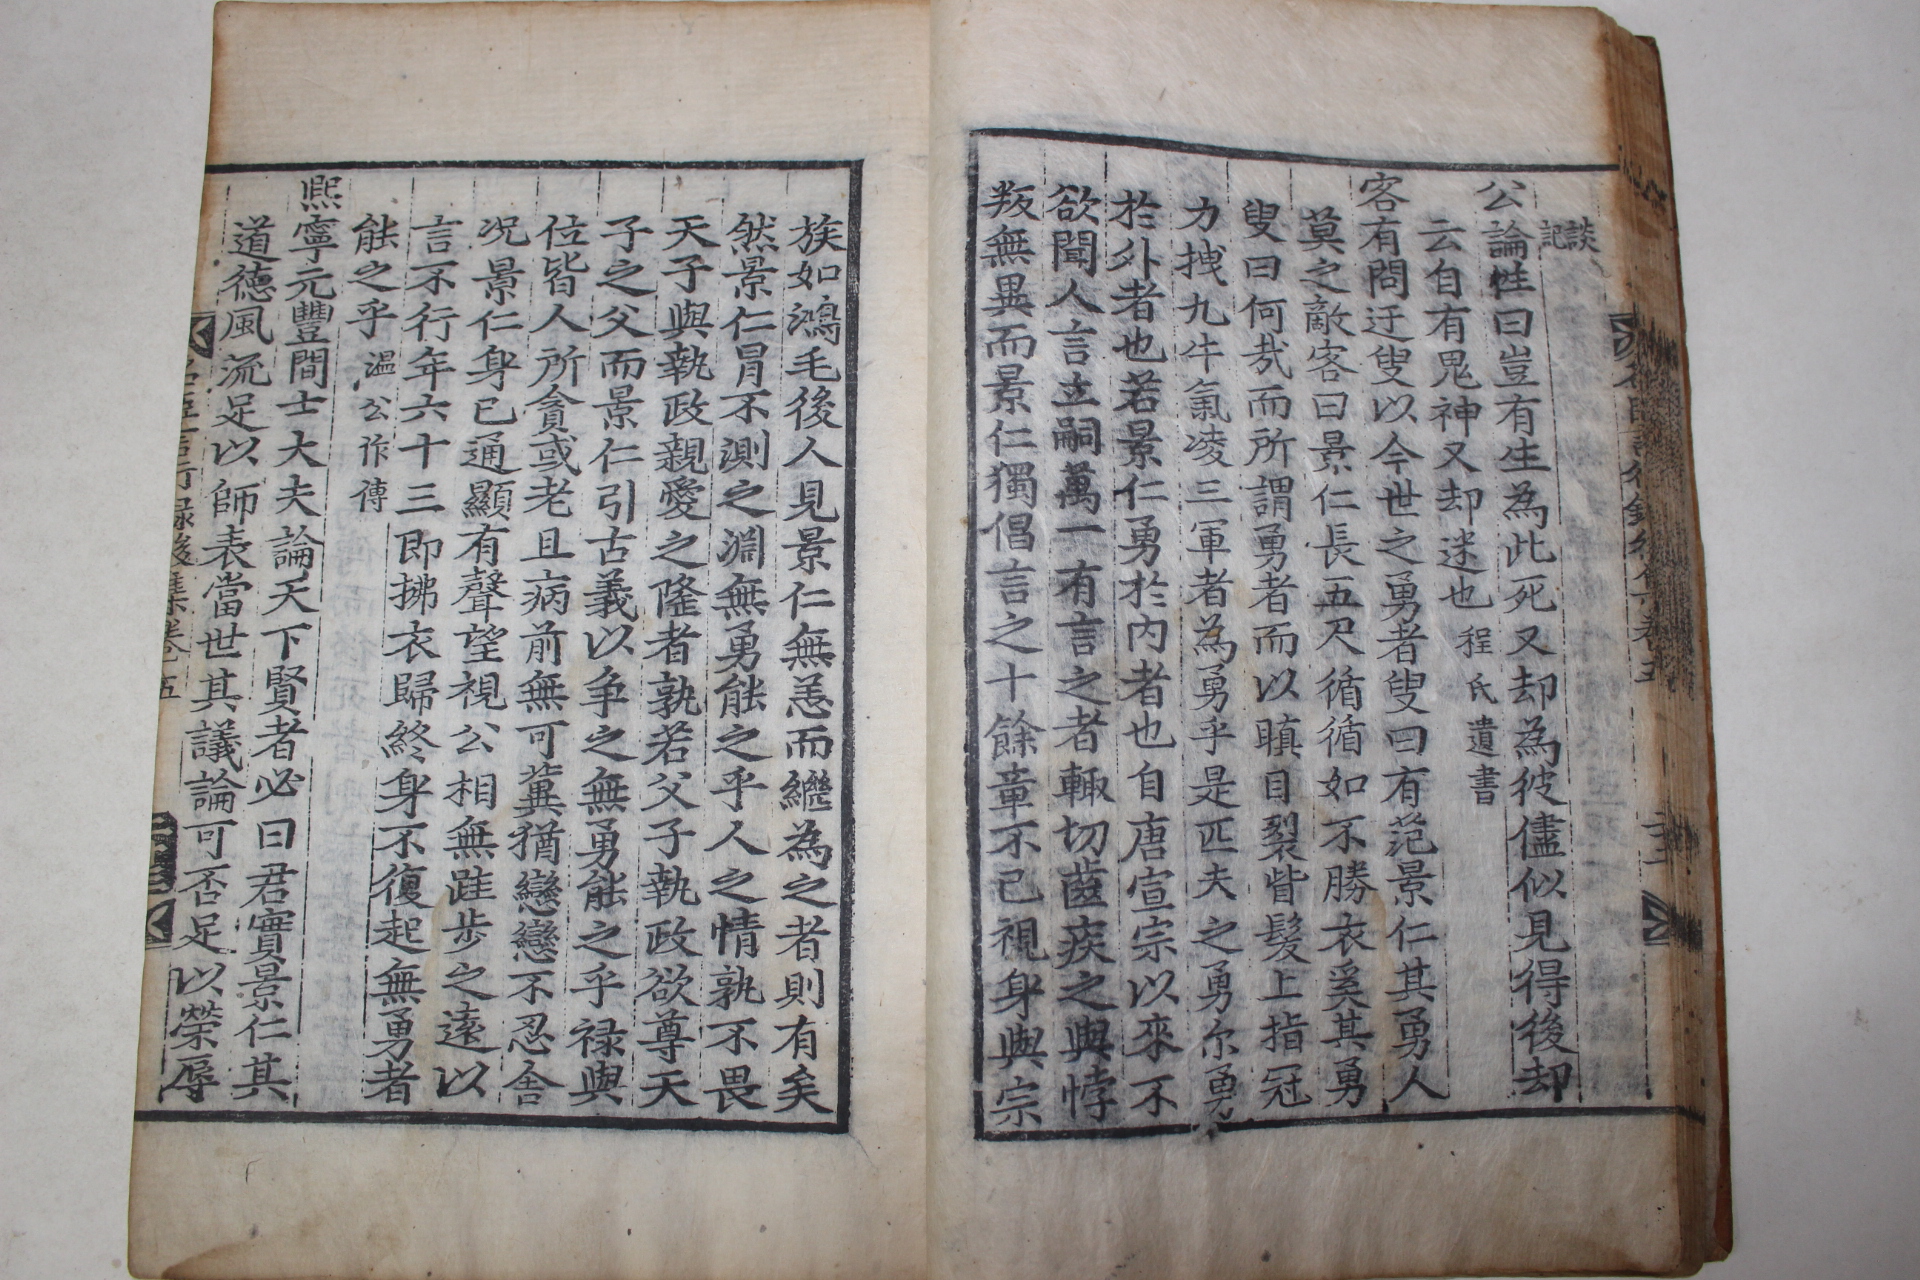 談記
公論性曰豈有生為此死又却為彼儘似見得後却
云自有鬼神又却迷也程氏遺書
客有問迂叟以今世之勇者叟曰有范景仁其勇人
莫之敵客曰景仁長五尺循循如不勝衣奚其勇
叟曰何㢤而所謂勇者而以瞋目裂眥髮上指冠
力拽九牛氣凌三軍者為勇乎是匹夫之勇尓勇
於外者也若景仁勇於內者也自唐宣宗以來不
欲聞人言立嗣萬一有言之者輙切齒疾之與悖
叛無異而景仁獨倡言之十餘章不已視身與宗
族如鴻毛後人見景仁無恙而繼為之者則有矣
然景仁冒不測之淵無勇能之乎人之情孰不畏
天子與執政親愛之隆者孰若父子執政欲尊天
子之父而景仁引古義以争之無勇能之乎禄與
位皆人所貪或老且病前無可冀猶戀戀不忍舍
况景仁身已通顯有聲望視公相無跬步之遠以
言不行年六十三即拂衣歸終身不復起無勇者
能之乎溫公作傳
熙寧元豐間士大夫論天下賢者必曰君實景仁其
道德風流足以師表當世其議論可否足以榮辱
言行録後集卷五